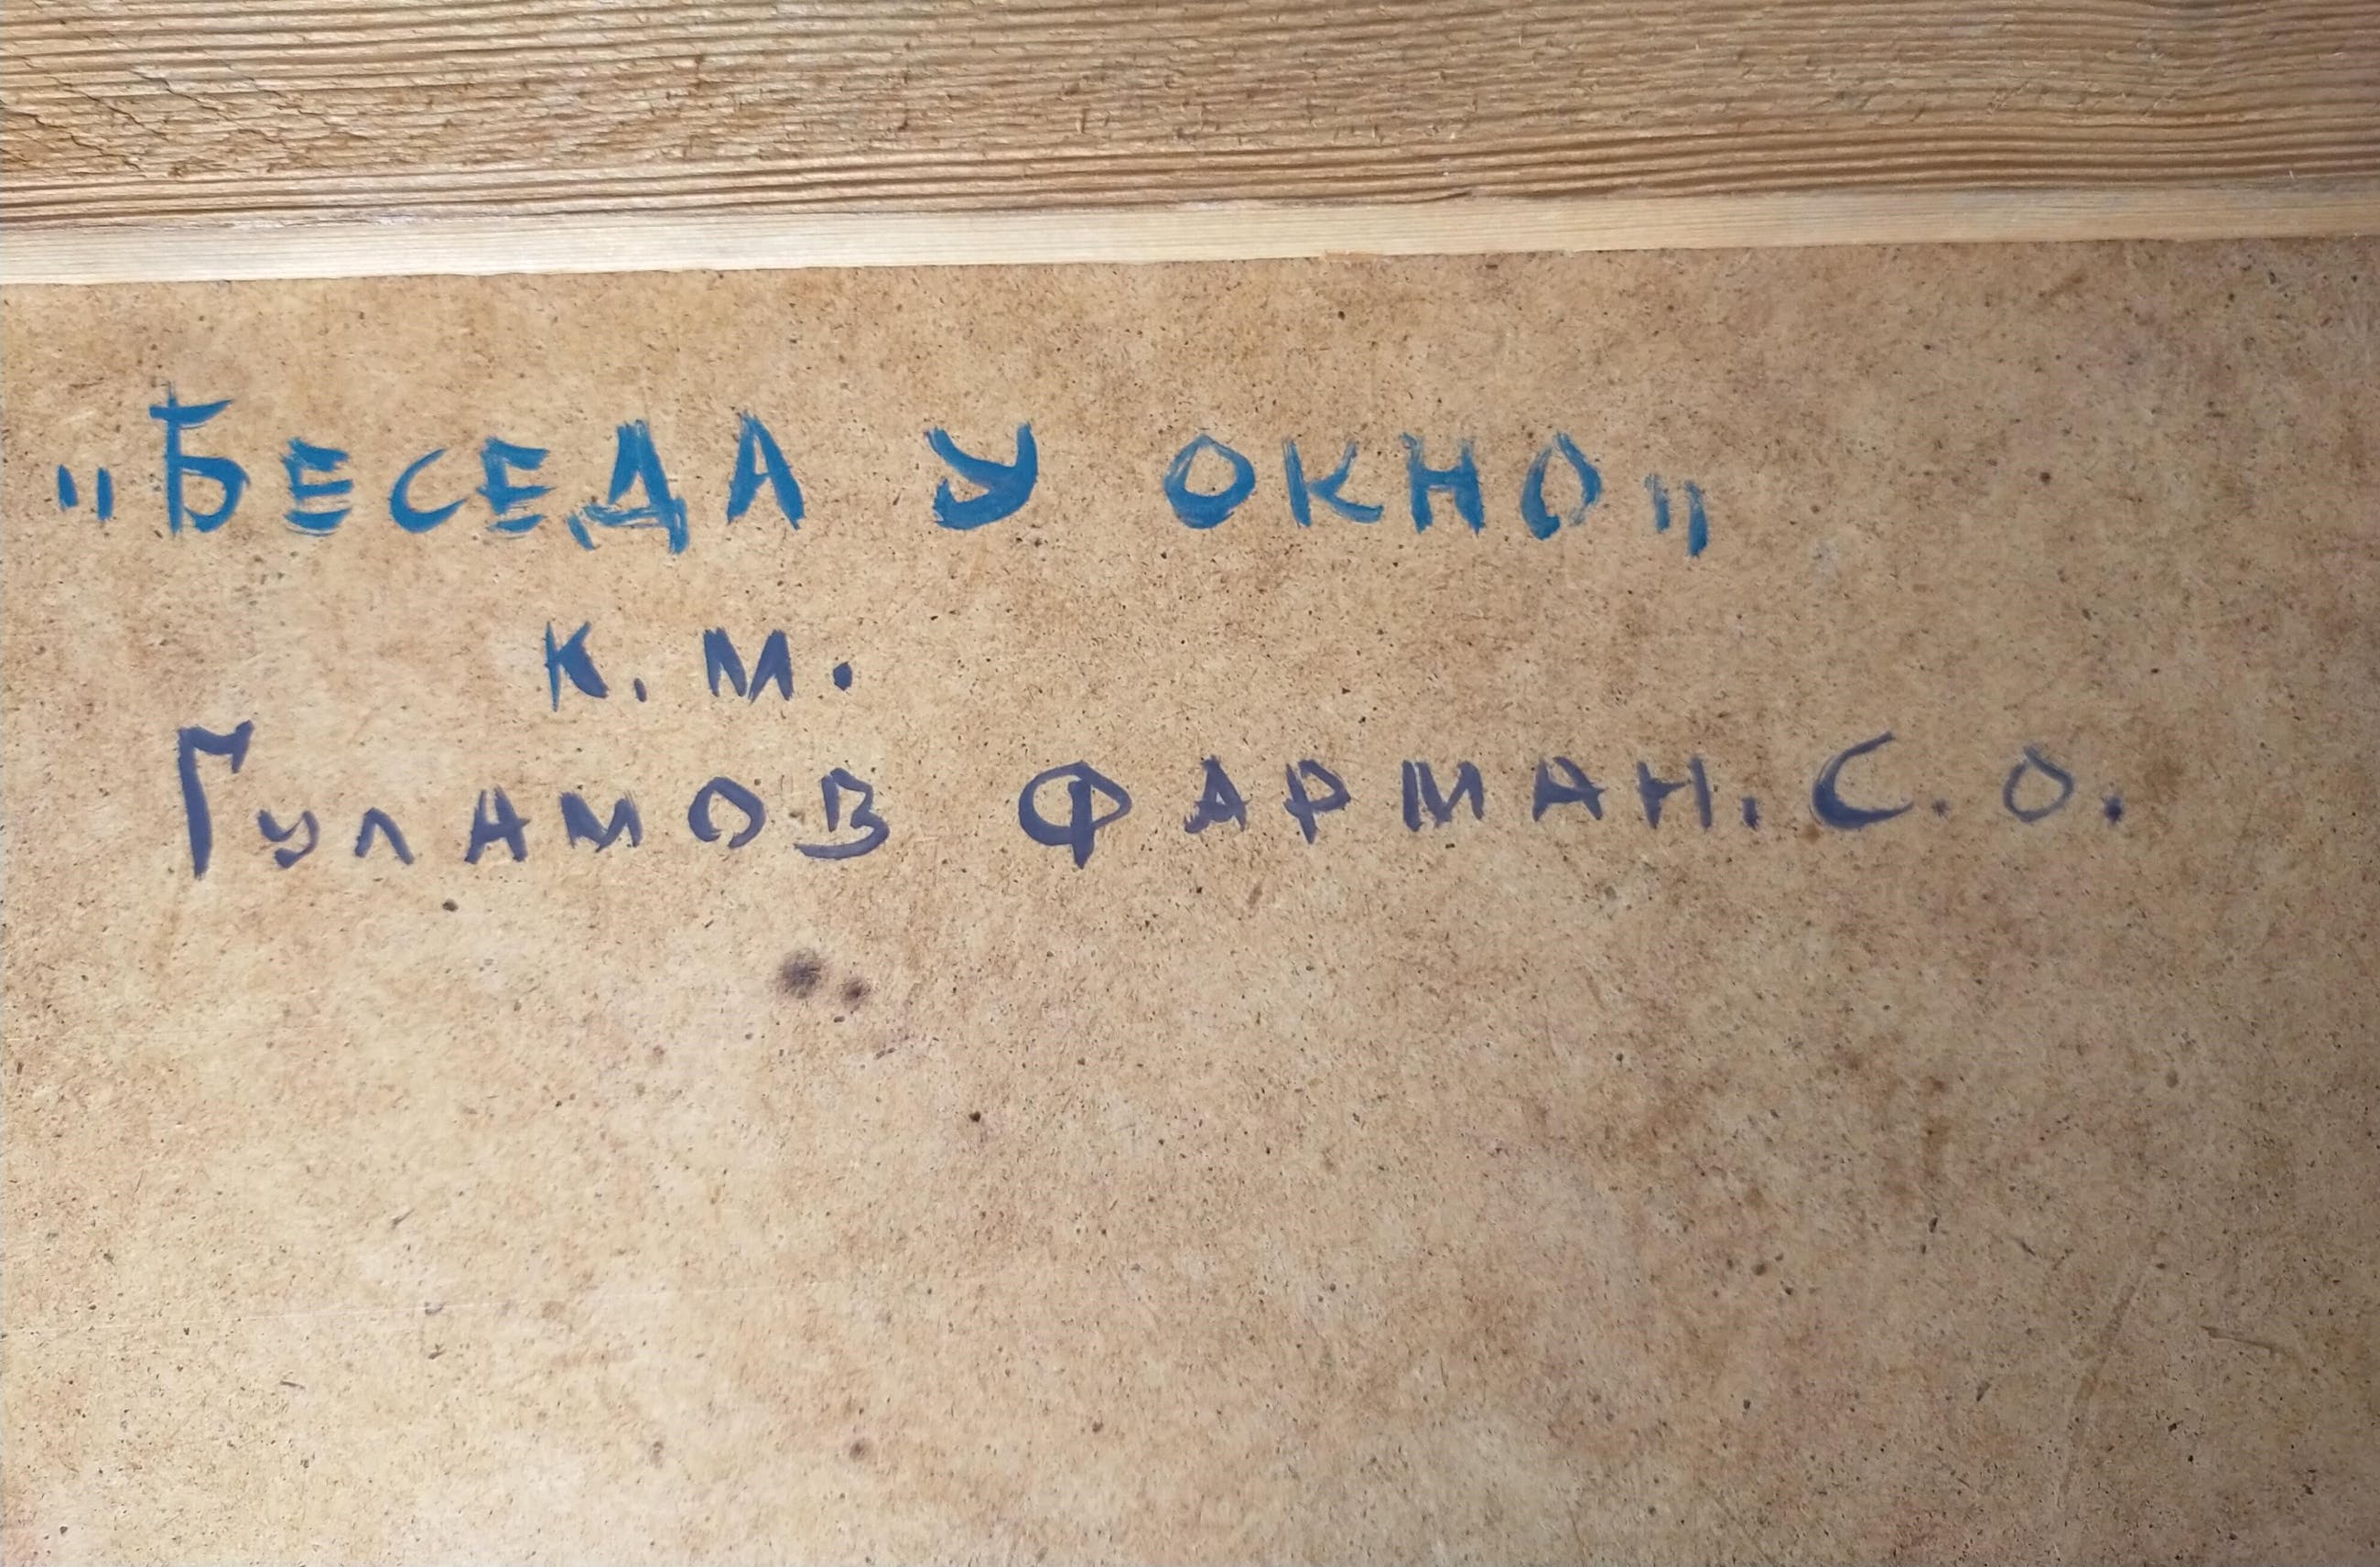 "БЕСЕДА У ОКНО"
К. М.
ГУЛАМОВ ФАРМАН. С. О.